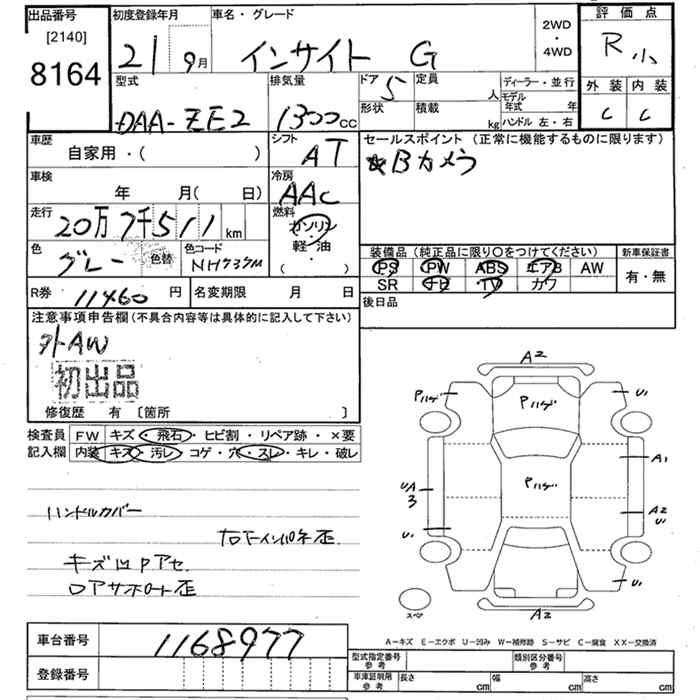 出品番号
[2140]
8164
初度登録年月
21 9月
車名・グレード
インサイト G
2WD
・
4WD
評価点
R 小
外装 内装
C C
型式
DAA-ZE2
排気量
1300 CC
ドア 5
形状
定員 人
積載 kg
ディーラー・並行
モデル年式 年
ハンドル 左・右
車歴
自家用・( )
シフト
AT
セールスポイント (正常に機能するものに限ります)
★Bカメラ
車検
年 月( 日)
冷房
AAC
走行
20万7千511 km
燃料
ガソリン
・
軽油
( )
色
グレー
色替
色コード
NH737M
装備品 (純正品に限り○をつけてください)
PS PW ABS エアB AW
SR ナビ TV カワ
新車保証書
有・無
R券 11460 円
名変期限 月 日
後日品
注意事項申告欄 (不具合内容等は具体的に記入して下さい)
外AW
初出品
修復歴 有 〔箇所 〕
検査員
記入欄
FW キズ・飛石・ヒビ割・リペア跡・×要
内装 キズ・汚レ・コゲ・穴・スレ・キレ・破レ
ハンドルカバー
キズ凹Pアセ
A2
Pハゲ
Pハゲ
U1
Pハゲ
A1
UA3
A2
U1
U1
U1
スペア
A2
A-キズ E-エクボ U-凹み W-補修跡 S-サビ C-腐食 XX-交換済
車台番号
1168977
登録番号
型式指定番号
参考
類別区分番号
参考
車庫証明用
参考
長さ cm
幅 cm
高さ cm